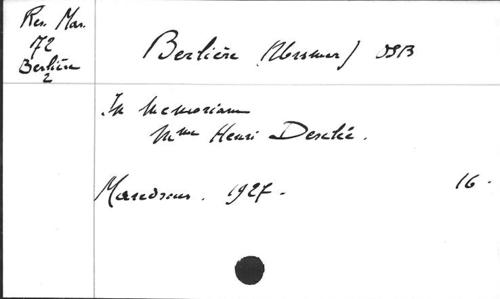 Res. Mar.
72
Berlière
2
Berlière (Ursmer) OSB
In memoriam
Mme Henri Desclée.
Maredsous. 1927.
16.